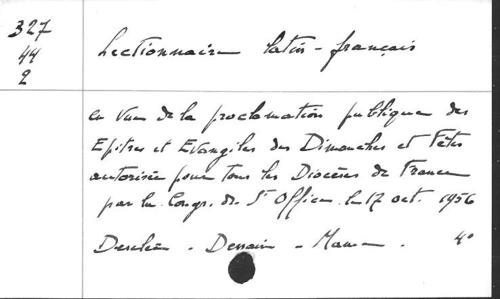 327
44
2
Lectionnaire latin-français
en vue de la proclamation publique des
Epitres et Evangiles des Dimanches et Fêtes
autorisée pour tous les Diocèses de France
par la Congr. du St Office le 17 oct. 1956
Desclée - Dessain - Mame. 4°